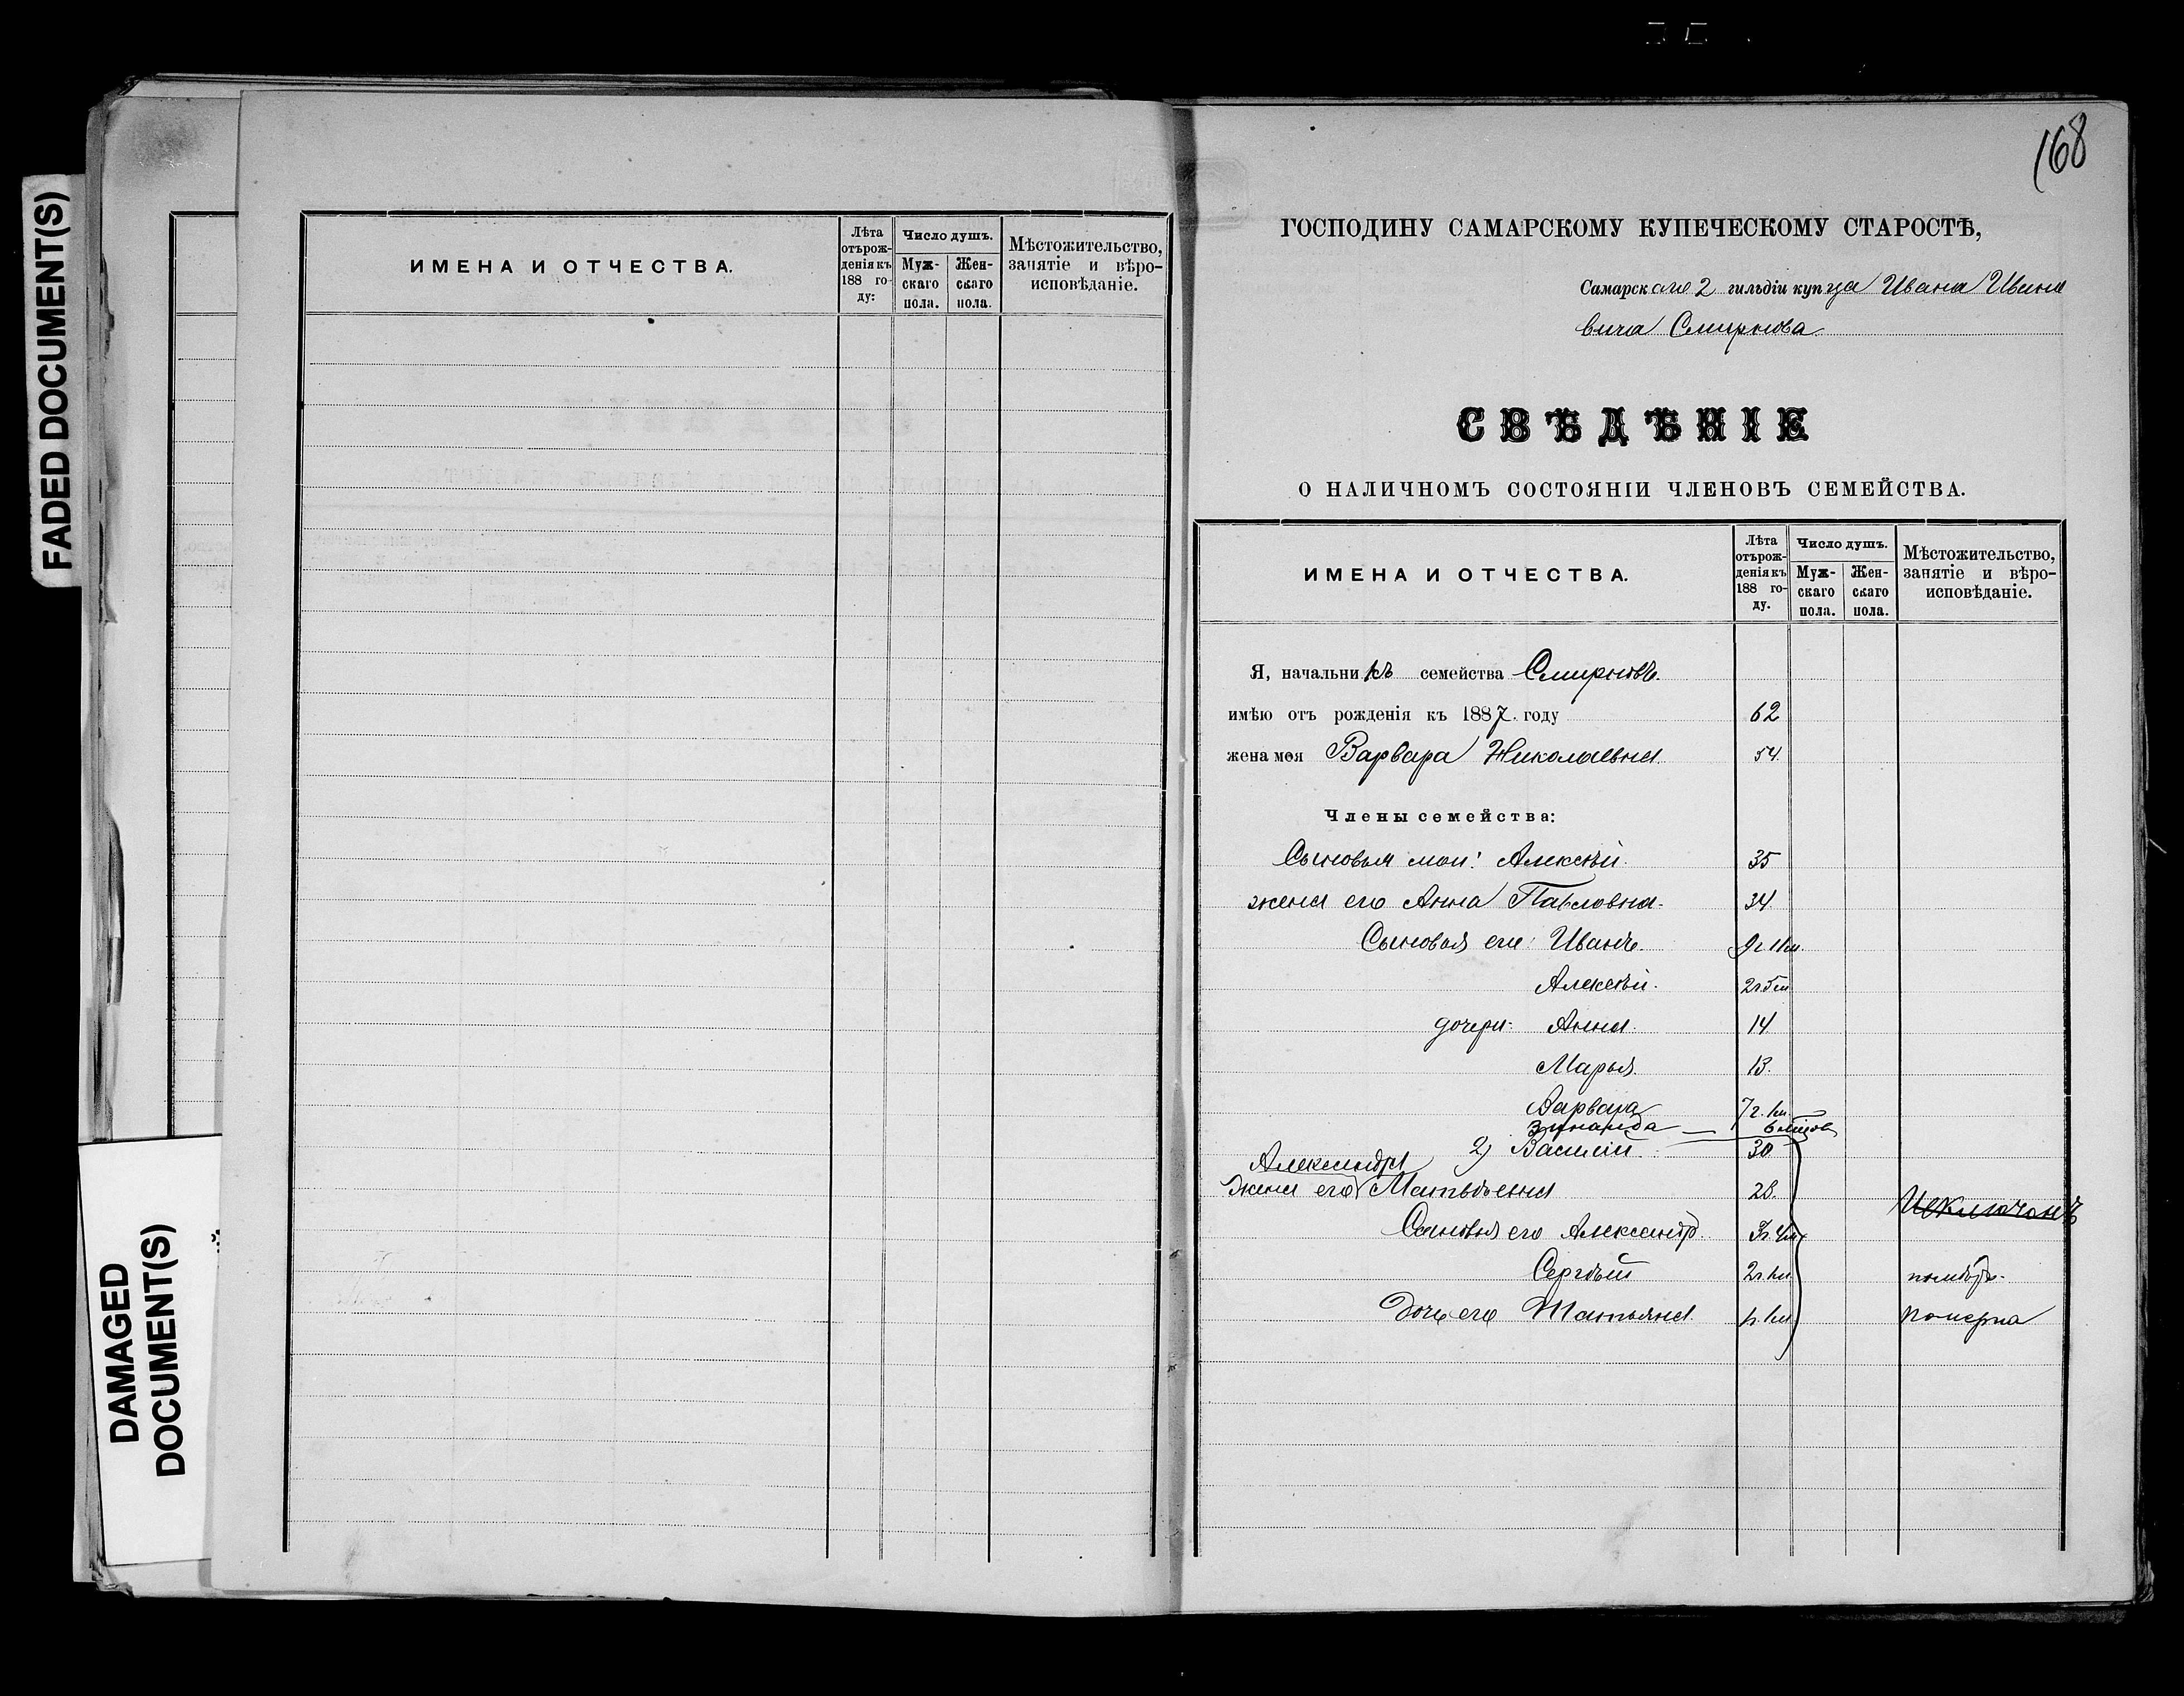 FADED DOCUMENT(S)
DAMAGED
DOCUMENT(S)
ИМЕНА И ОТЧЕСТВА.
Лѣта
отърож-
денія къ
188 го-
ду:
Число душъ.
Муж-
скаго
пола.
Жен-
скаго
пола.
Мѣстожительство,
занятіе и вѣро-
исповѣданіе.
168
ГОСПОДИНУ САМАРСКОМУ КУПЕЧЕСКОМУ СТАРОСТѢ,
Самарскаго 2 гильдіи купца Ивана Ивано
вича Смирнова
СВѢДѢНІЕ
О НАЛИЧНОМЪ СОСТОЯНІИ ЧЛЕНОВЪ СЕМЕЙСТВА.
ИМЕНА И ОТЧЕСТВА.
Лѣта
отърож-
денія къ
188 го-
ду.
Число душъ.
Муж-
скаго
пола.
Жен-
скаго
пола.
Мѣстожительство,
занятіе и вѣро-
исповѣданіе.
Я, начальникъ семейства Смирновъ.
имѣю отъ рожденія къ 1887. году 62
жена моя Варвара Николаевна. 54.
Члены семейства:
Сыновья мои: Алексѣй. 35
жена его Анна Павловна. 34.
Сыновья его: Иванъ. 9 г. 11 м.
Алексѣй. 2 г. 5 м
дочери: Анна. 14
Марья. 13.
Варвара 7 г. 1 м.
Зинаида — 6 мѣсяцов
2) Василій. 30
Александра
Жена его Матвѣевна 28.
Исключонъ
Сыновья его Александр. 3 г. 4 м
Сергѣй 2 г. 1 м
Дочь его Татьяна. 1 г. 1 м
померла